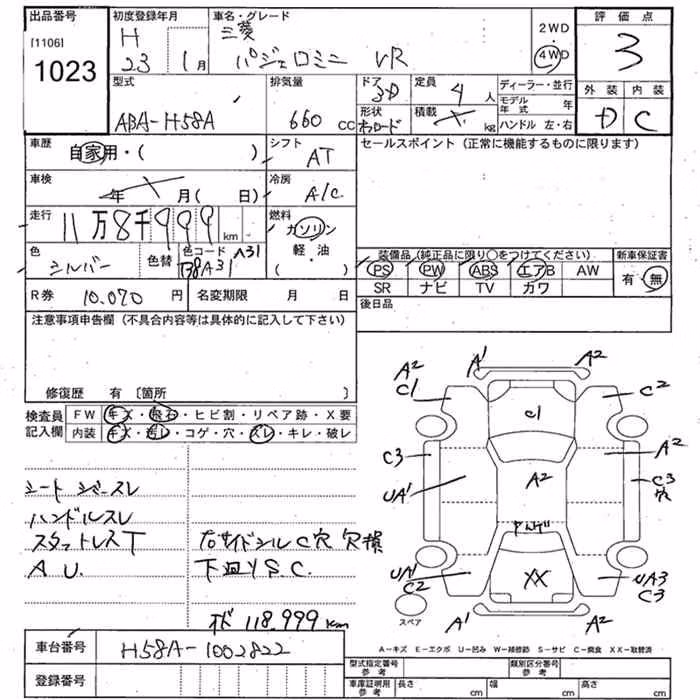 出品番号
[1106]
1023
初度登録年月
H
23 1月
車名・グレード
三菱
パジェロミニ VR
2WD
4WD
評価点
3
外装 内装
D C
型式
ABA-H58A
排気量
660 cc
ドア
3D
形状
定員
4人
積載
kg
ディーラー・並行
モデル年式 年
ハンドル 左・右
車歴
自家用・( )
シフト
AT
セールスポイント(正常に機能するものに限ります)
車検
年 月( 日)
冷房
A/C
走行
11万8千999 km
燃料
ガソリン
軽・油
( )
色
シルバー
色替
色コード A31
装備品(純正品に限り○をつけてください)
PS PW ABS エアB AW
SR ナビ TV カワ
新車保証書
有・無
R券 10.070円
名変期限 月 日
後日品
注意事項申告欄(不具合内容等は具体的に記入して下さい)
修復歴 有 [箇所 ]
検査員記入欄
FW キズ・飛石・ヒビ割・リペア跡・X要
内装 キズ・汚レ・コゲ・穴・スレ・キレ・破レ
シートジャースレ
ハンドルスレ
スタットレスT
A U.
右サイドシルC穴 欠損
下廻りS.C.
118.999km
A2
C1
A1
A2
C2
C1
C3
A2
A2
C3
穴
UA1
UA1
C2
XX
UA3
C3
A1
A2
スペア
A-キズ E-エクボ U-凹み W-補修跡 S-サビ C-腐食 XX-取替済
車台番号
H58A-1002822
登録番号
型式指定番号
参考
類別区分番号
参考
車庫証明用
参考
長さ cm
幅 cm
高さ cm